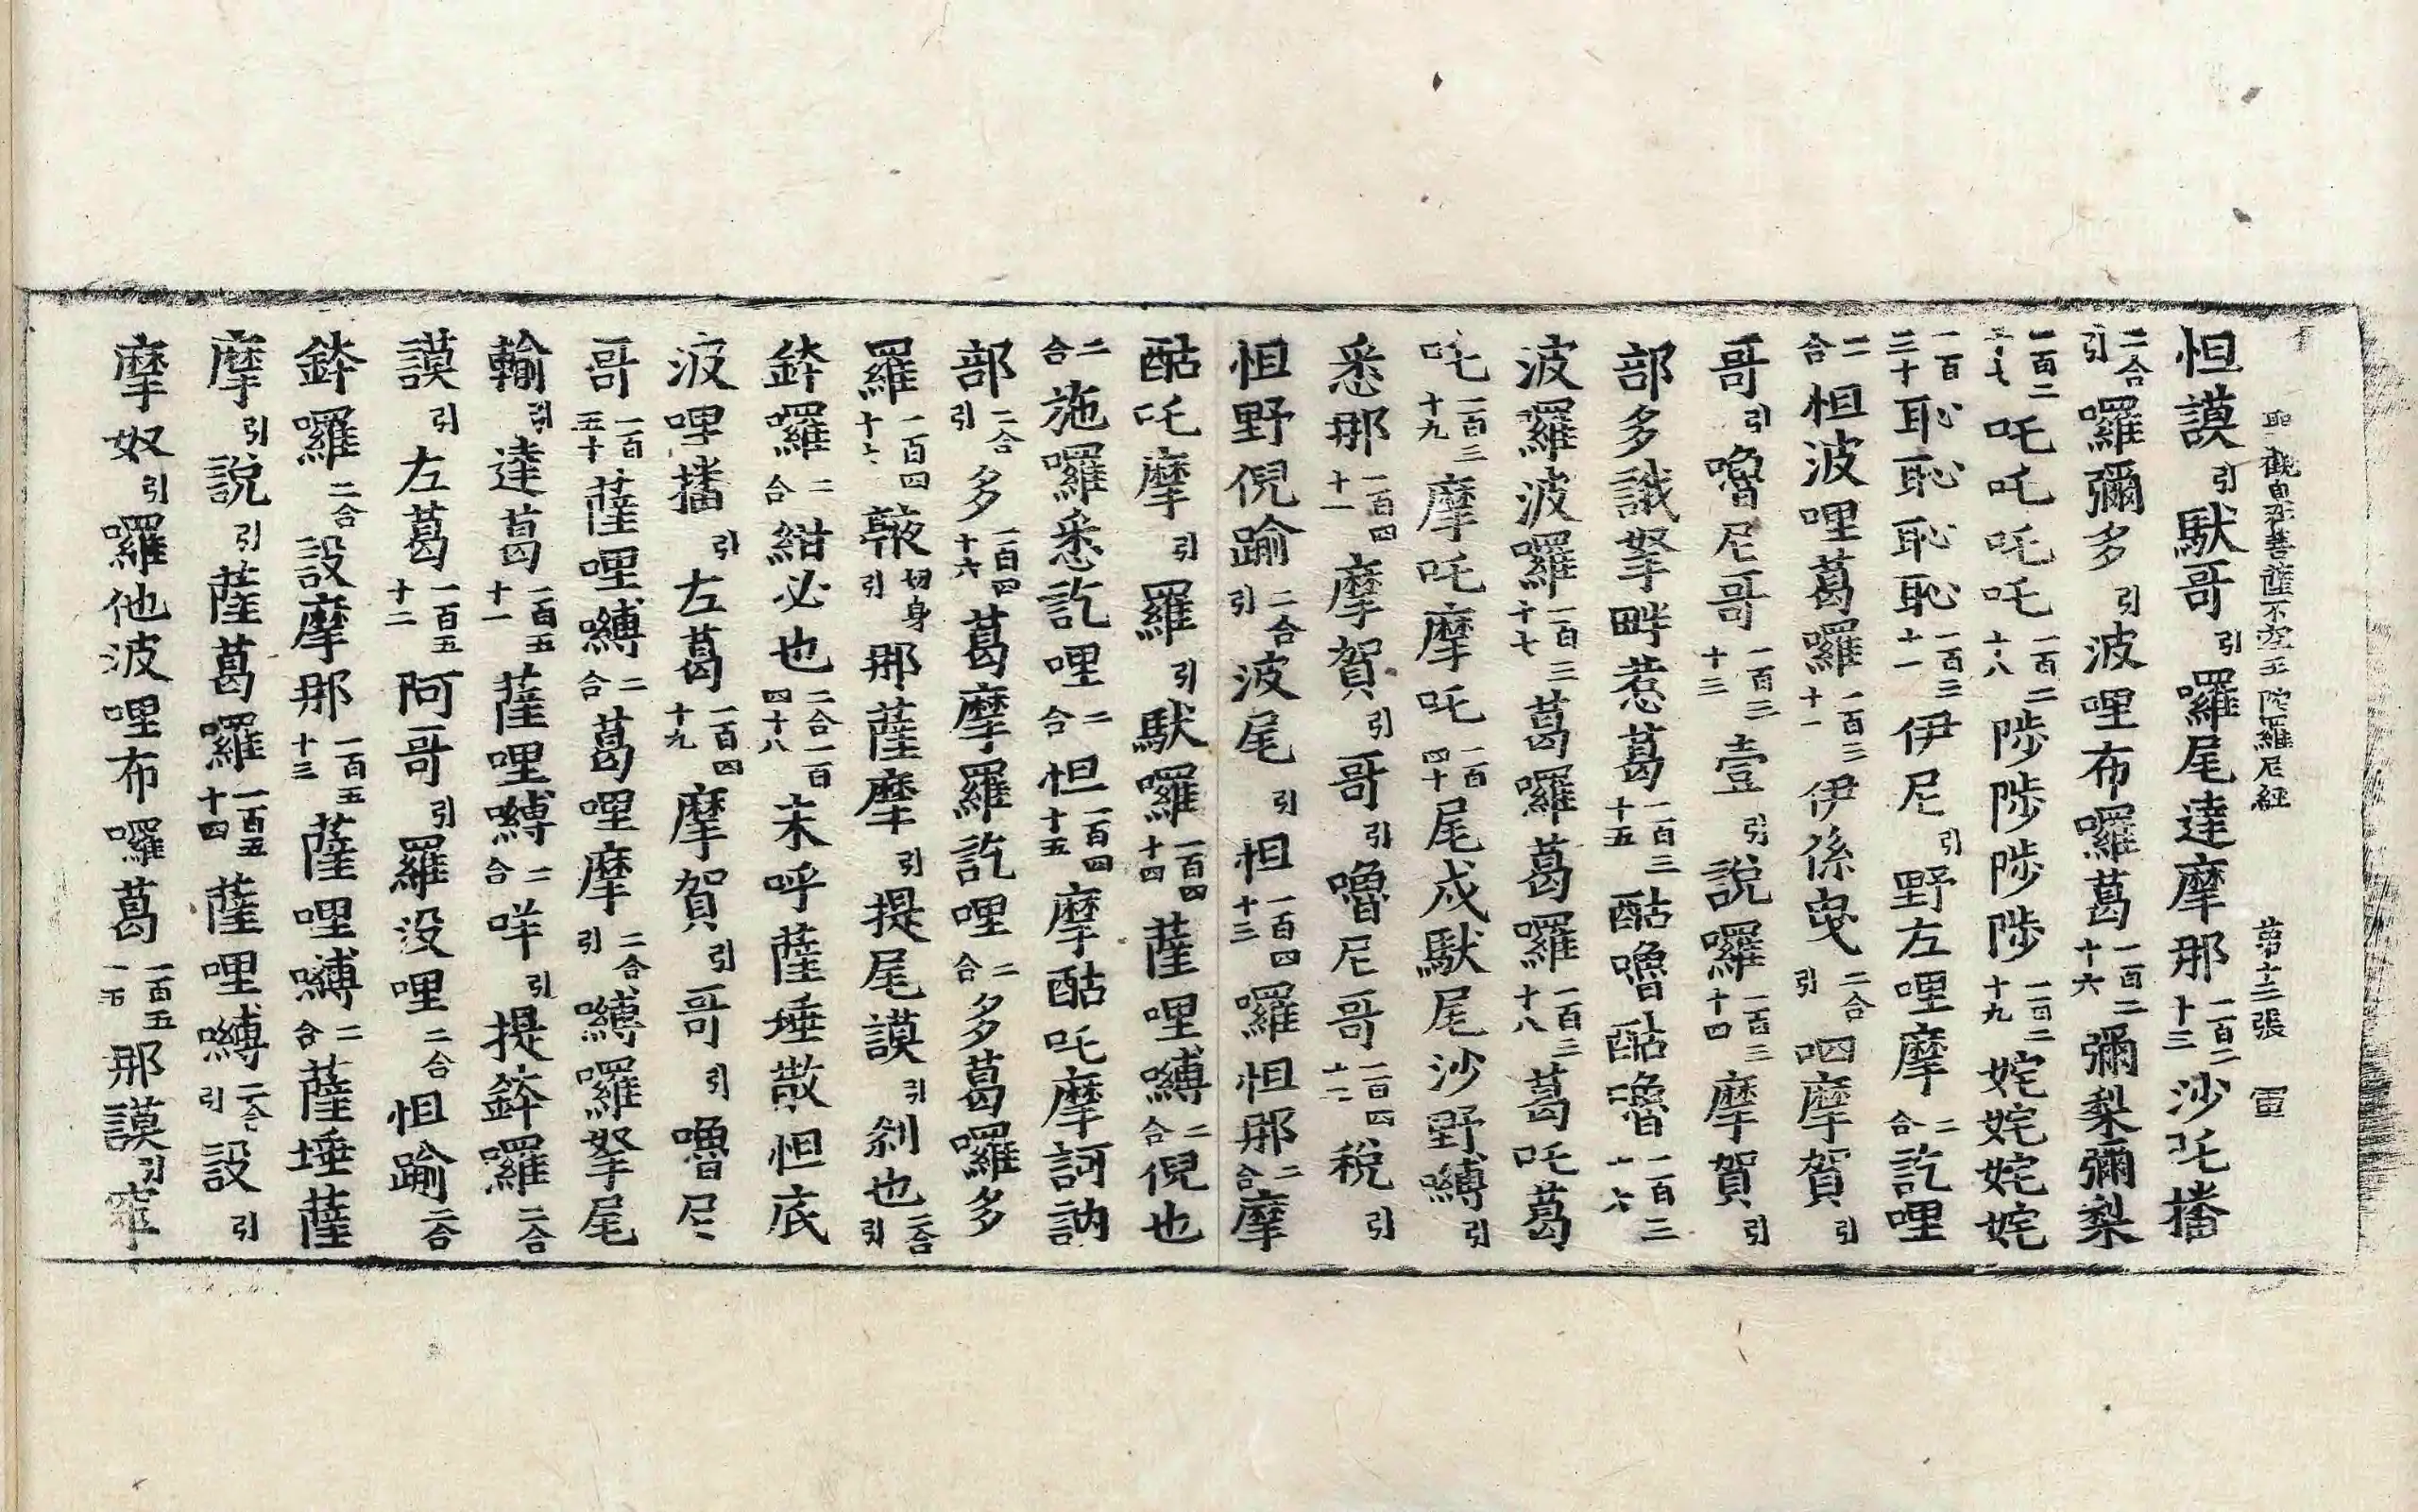 聖觀自在菩薩不空王陀羅尼經 第十三張 雷
怛謨引馱哥引囉尾達摩那一百二十三沙吒播
二合引囉彌多引波哩布囉葛一百二十六彌梨彌梨
一百二十七吒吒吒吒一百二十八陟陟陟陟一百二十九姹姹姹姹
一百三十恥恥恥恥一百三十一伊尼引野左哩摩二合訖哩
二合怛波哩葛囉一百三十一伊係曳二合引呬摩賀引
哥引嚕尼哥一百三十三壹引說囉一百三十四摩賀引
部多誐拏畔惹葛一百三十五酤嚕酤嚕一百三十六
波囉波囉一百三十七葛囉葛囉一百三十八葛吒葛
吒一百三十九摩吒摩吒一百四十尾戍馱尾沙野嚩引
悉那一百四十一摩賀引哥引嚕尼哥一百四十二稅引
怛野倪踰二合引波尾引怛一百四十三囉怛那二合摩
酤吒摩引羅引馱囉一百四十四薩哩嚩二合倪也
二合施囉悉訖哩二合怛一百四十五摩酤吒摩訶訥
部二合引多一百四十六葛摩羅訖哩二合多葛囉多
羅一百四十七𩐱切身引那薩摩引提尾謨引剎也二合引
鉢囉二合紺必也二合一百四十八末呼薩埵散怛底
波哩播引左葛一百四十九摩賀引哥引嚕尼
哥一百五十薩哩嚩二合葛哩摩二合引嚩囉拏尾
輸引達葛一百五十一薩哩嚩二合咩引提鉢囉二合
謨引左葛一百五十二阿哥引羅没哩二合怛踰二合
鉢囉二合設摩那一百五十三薩哩嚩二合薩埵薩
摩引說引薩葛囉一百五十四薩哩嚩二合引設引
摩奴引囉他波哩布囉葛一百五十那謨引窣